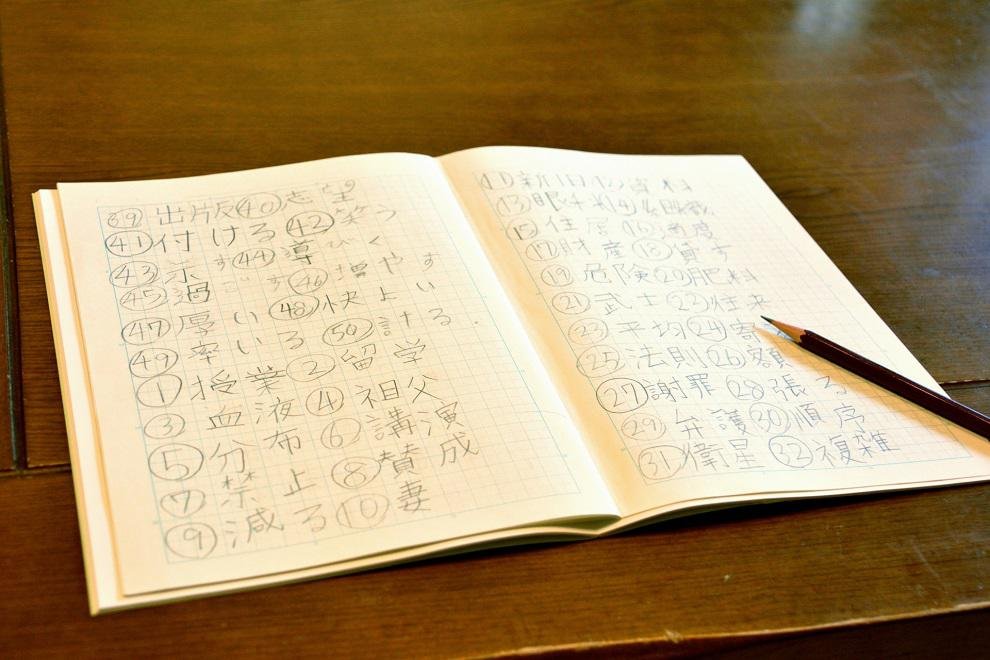 ㊴出版㊵志望
㊶付ける㊷笑う
㊸示す㊹導びく
㊺過ごす㊻増やす
㊼厚い㊽快よい
㊾率いる㊿計る
①授業②留学
③血液④祖父
⑤分布⑥講演
⑦禁止⑧賛成
⑨減る⑩妻
⑪新旧⑫資料
⑬眼科⑭
⑮住居⑯適度
⑰財産⑱貸す
⑲危険⑳肥料
㉑武士㉒往来
㉓平均㉔寄
㉕法則㉖額
㉗謝罪㉘張る
㉙弁護㉚順序
㉛衛星㉜複雑